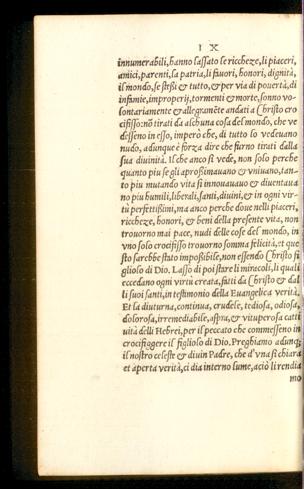 I X
innumerabili, hanno lassato le riccheze, li piaceri,
amici, parenti, la patria, li fiuori, honori, dignità,
il mondo, se stessi & tutto, & per via di pouertà, di
infamie, improperij, tormenti & morte, sonno vo-
lontariamente & allegramẽte andati a Christo cro
cifisso: nõ tirati da alchuna cosa del mondo, che ve
desseno in esso, imperò che, di tutto lo vedeuano
nudo, adunque è forza dire che furno tirati dalla
sua diuinità. Il che anco si vede, non solo perche
quanto piu se gli aprossimauano & vniuano, tan-
to piu mutando vita si innouauano & diuentaua
no piu humili, liberali, santi, diuini, & in ogni vir-
tù perfettissimi, ma anco perche doue nelli piaceri,
riccheze, honori, & beni della presente vita, non
trouorno mai pace, nudi delle cose del mondo, in
vno solo crocifisso trouorno somma felicità, et que
sto sarebbe stato impossibile, non essendo Christo fi
gliolo di Dio. Lasso di poi stare li miracoli, li quali
eccedano ogni virtù creata, fatti da Christo & dal
li suoi santi, in testimonio della Euangelica verità.
Et la diuturna, continua, crudele, tediosa, odiosa,
dolorosa, irremediabile, aspra, & vituperosa catti
uità delli Hebrei, per il peccato che commesseno in
crocifiggere il figliolo di Dio. Preghiamo adunq;
il nostro celeste & diuin Padre, che d'vna sì chiara
et aperta verità, ci dia interno lume, aciò li rendia
mo